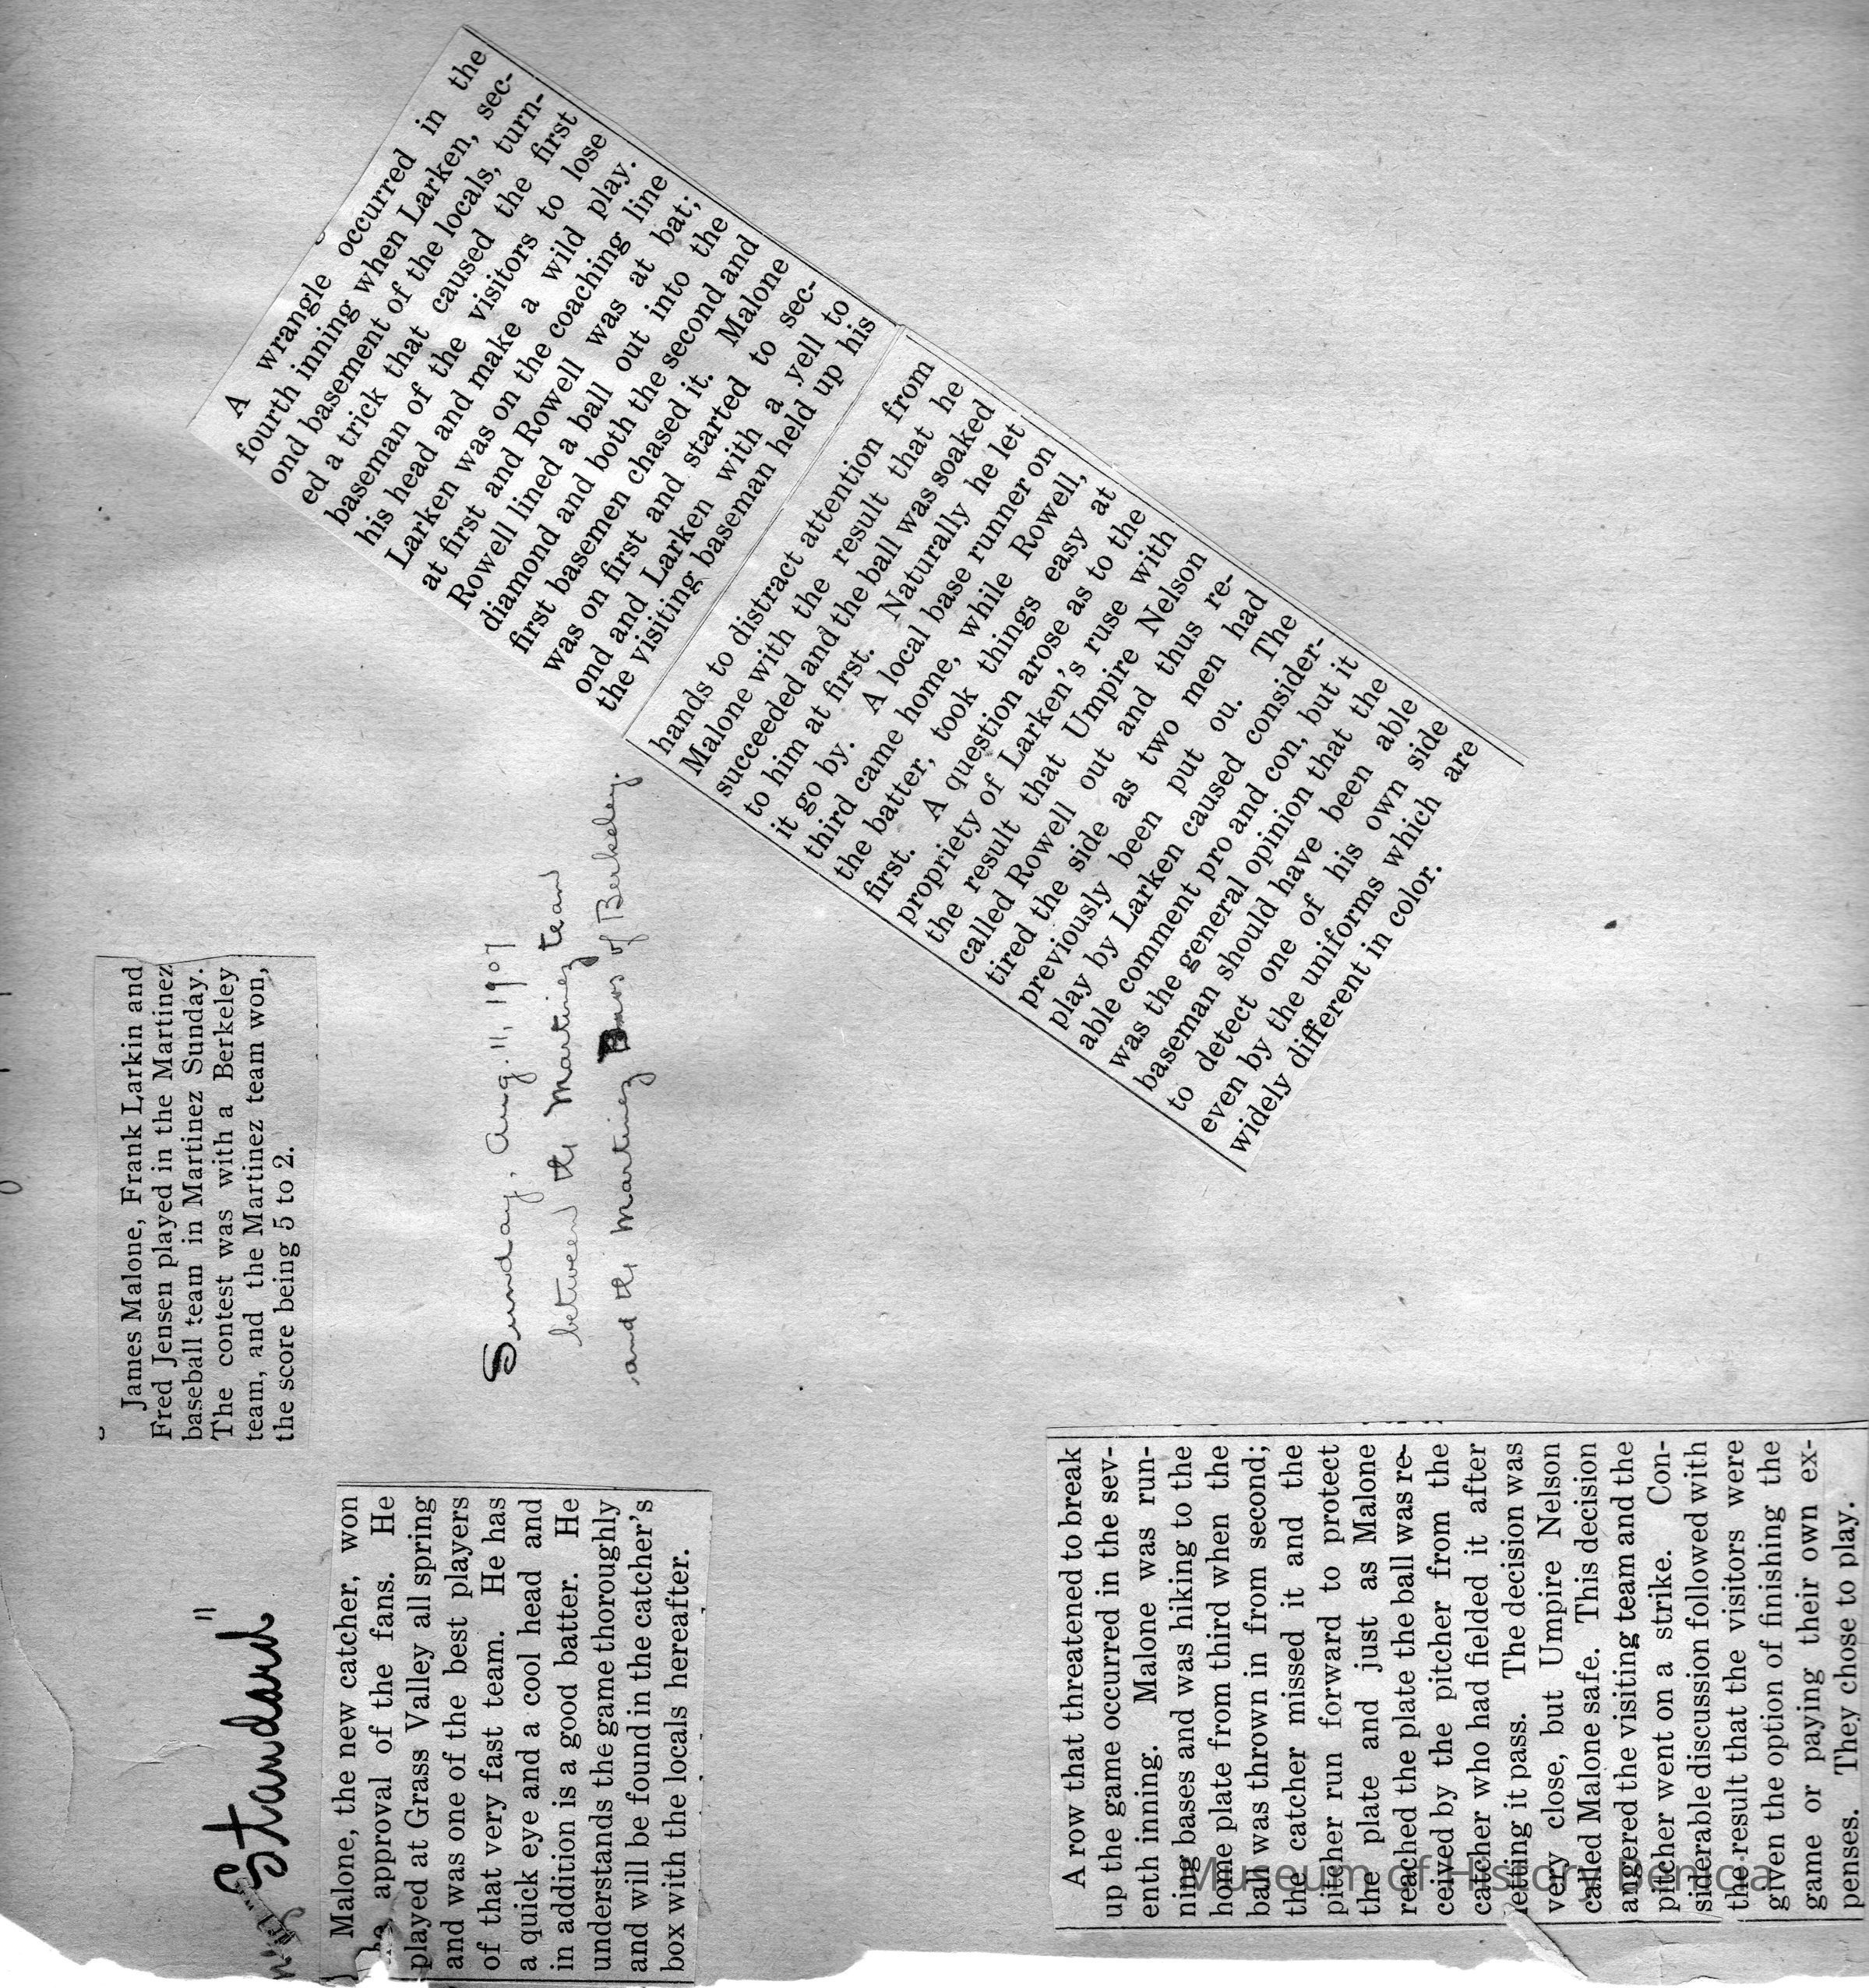 Standard"
James Malone, Frank Larkin and
Fred Jensen played in the Martinez
baseball team in Martinez Sunday.
The contest was with a Berkeley
team, and the Martinez team won,
the score being 5 to 2.
Malone, the new catcher, won
he approval of the fans. He
played at Grass Valley all spring
and was one of the best players
of that very fast team. He has
a quick eye and a cool head and
in addition is a good batter. He
understands the game thoroughly
and will be found in the catcher's
box with the locals hereafter.
Sunday, Aug. 11, 1907
between the Martinez team
and the Martinez of Berkeley.
A wrangle occurred in the
fourth inning when Larken, sec-
ond basement of the locals, turn-
ed a trick that caused the first
baseman of the visitors to lose
his head and make a wild play.
Larken was on the coaching line
at first and Rowell was at bat;
Rowell lined a ball out into the
diamond and both the second and
first basemen chased it. Malone
was on first and started to sec-
ond and Larken with a yell to
the visiting baseman held up his
hands to distract attention from
Malone with the result that he
succeeded and the ball was soaked
to him at first. Naturally he let
it go by. A local base runner on
third came home, while Rowell,
the batter, took things easy at
first. A question arose as to the
propriety of Larken's ruse with
the result that Umpire Nelson
called Rowell out and thus re-
tired the side as two men had
previously been put ou. The
play by Larken caused consider-
able comment pro and con, but it
was the general opinion that the
baseman should have been able
to detect one of his own side
even by the uniforms which are
widely different in color.
A row that threatened to break
up the game occurred in the sev-
enth inning. Malone was run-
ning bases and was hiking to the
home plate from third when the
ball was thrown in from second;
the catcher missed it and the
pitcher run forward to protect
the plate and just as Malone
reached the plate the ball was re-
ceived by the pitcher from the
catcher who had fielded it after
letting it pass. The decision was
very close, but Umpire Nelson
called Malone safe. This decision
angered the visiting team and the
pitcher went on a strike. Con-
siderable discussion followed with
the result that the visitors were
given the option of finishing the
game or paying their own ex-
penses. They chose to play.
Museum of History Benicia